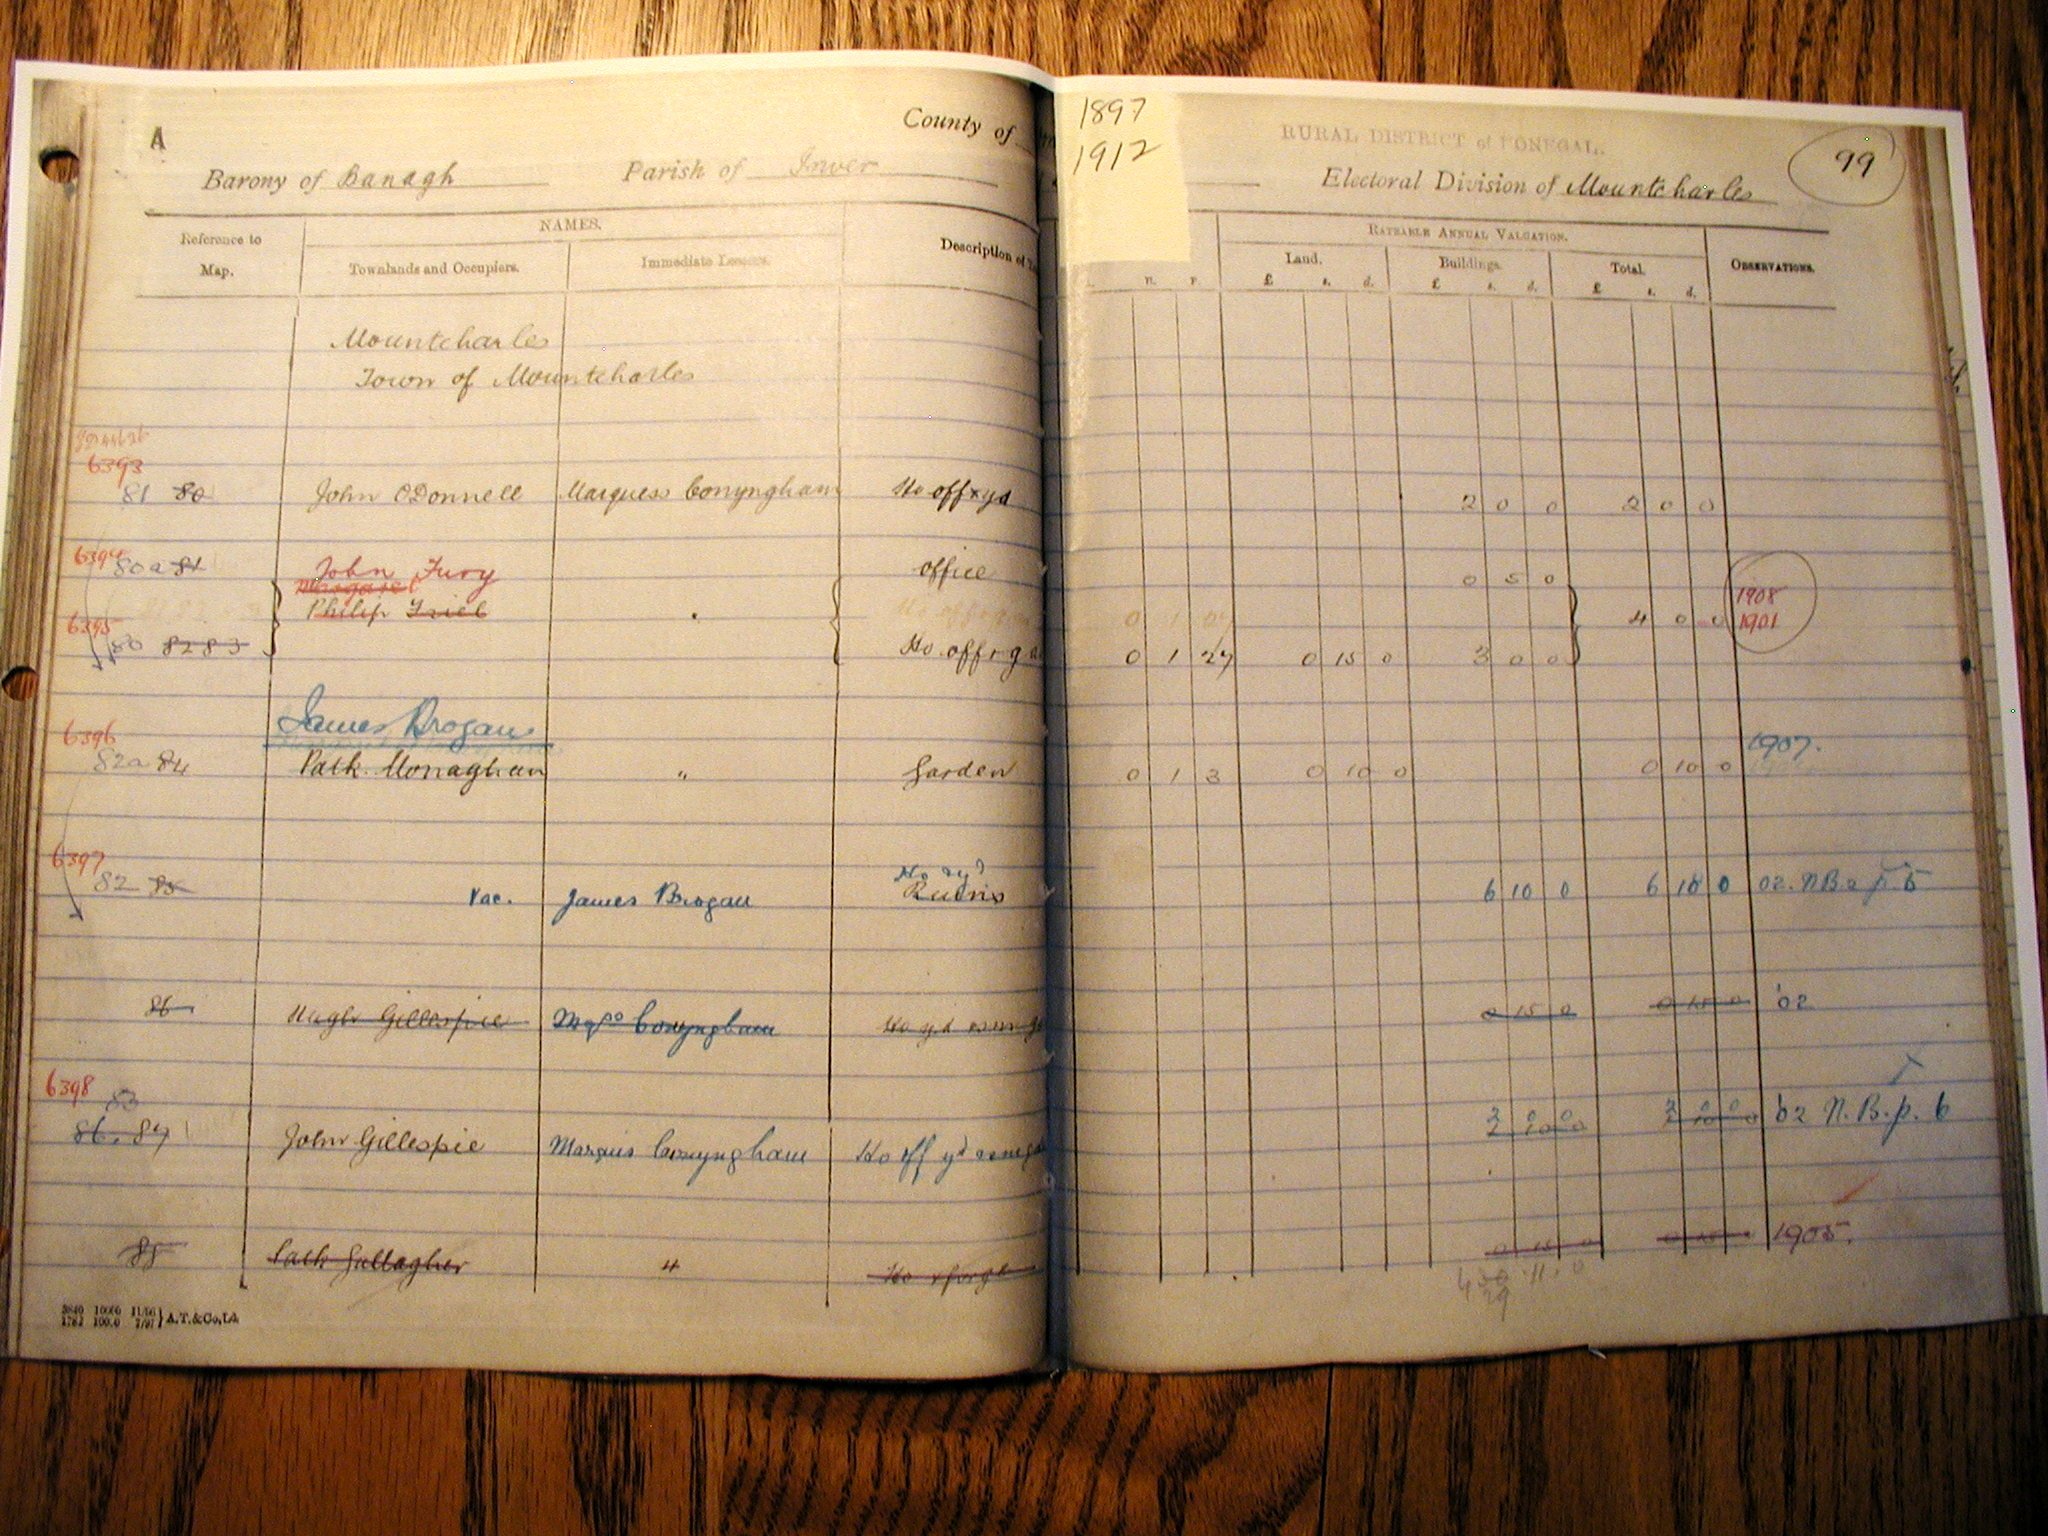 A
County of
1897
1912
RURAL DISTRICT of DONEGAL.
99
Barony of Banagh Parish of Inver
Electoral Division of Mountcharles
Reference to Map.
NAMES.
Townlands and Occupiers.
Immediate Lessors.
Description of
RATEABLE ANNUAL VALUATION.
Land. Buildings. Total.
OBSERVATIONS.
R. P. £ s. d. £ s. d. £ s. d.
Mountcharles
Town of Mountcharles
6393
81 80 John O'Donnell Marquess Conyngham Ho off & yd 2 0 0 2 0 0
6394 80a 81 John Fury office 0 5 0
Margaret 1908
Philip Friel 4 0 0 1901
6395
80 82 83 Ho. off & ga 0 1 27 0 15 0 3 0 0
James Brogan
6396 1907.
82a 84 Patk. Monaghan " Garden 0 1 3 0 10 0 0 10 0
6397 Ho & yd
82 85 Vac. James Brogan Ruins 6 10 0 6 10 0 02. N.B. p. 5
86 Hugh Gillespie Mqss Conyngham Ho yd & sm 0 15 0 0 15 0 '02
6398 83 3 0 0 3 0 0
86.87 John Gillespie Marquis Conyngham Ho off yd & sm ga 2 10 0 2 10 0 '02 N. B. p. 6
88 Patk Gallagher " Ho & forge 0 15 0 0 15 0 1905.
29
3840 10000 11/96
1762 100.0 7/97 } A.T.&Co,Ld